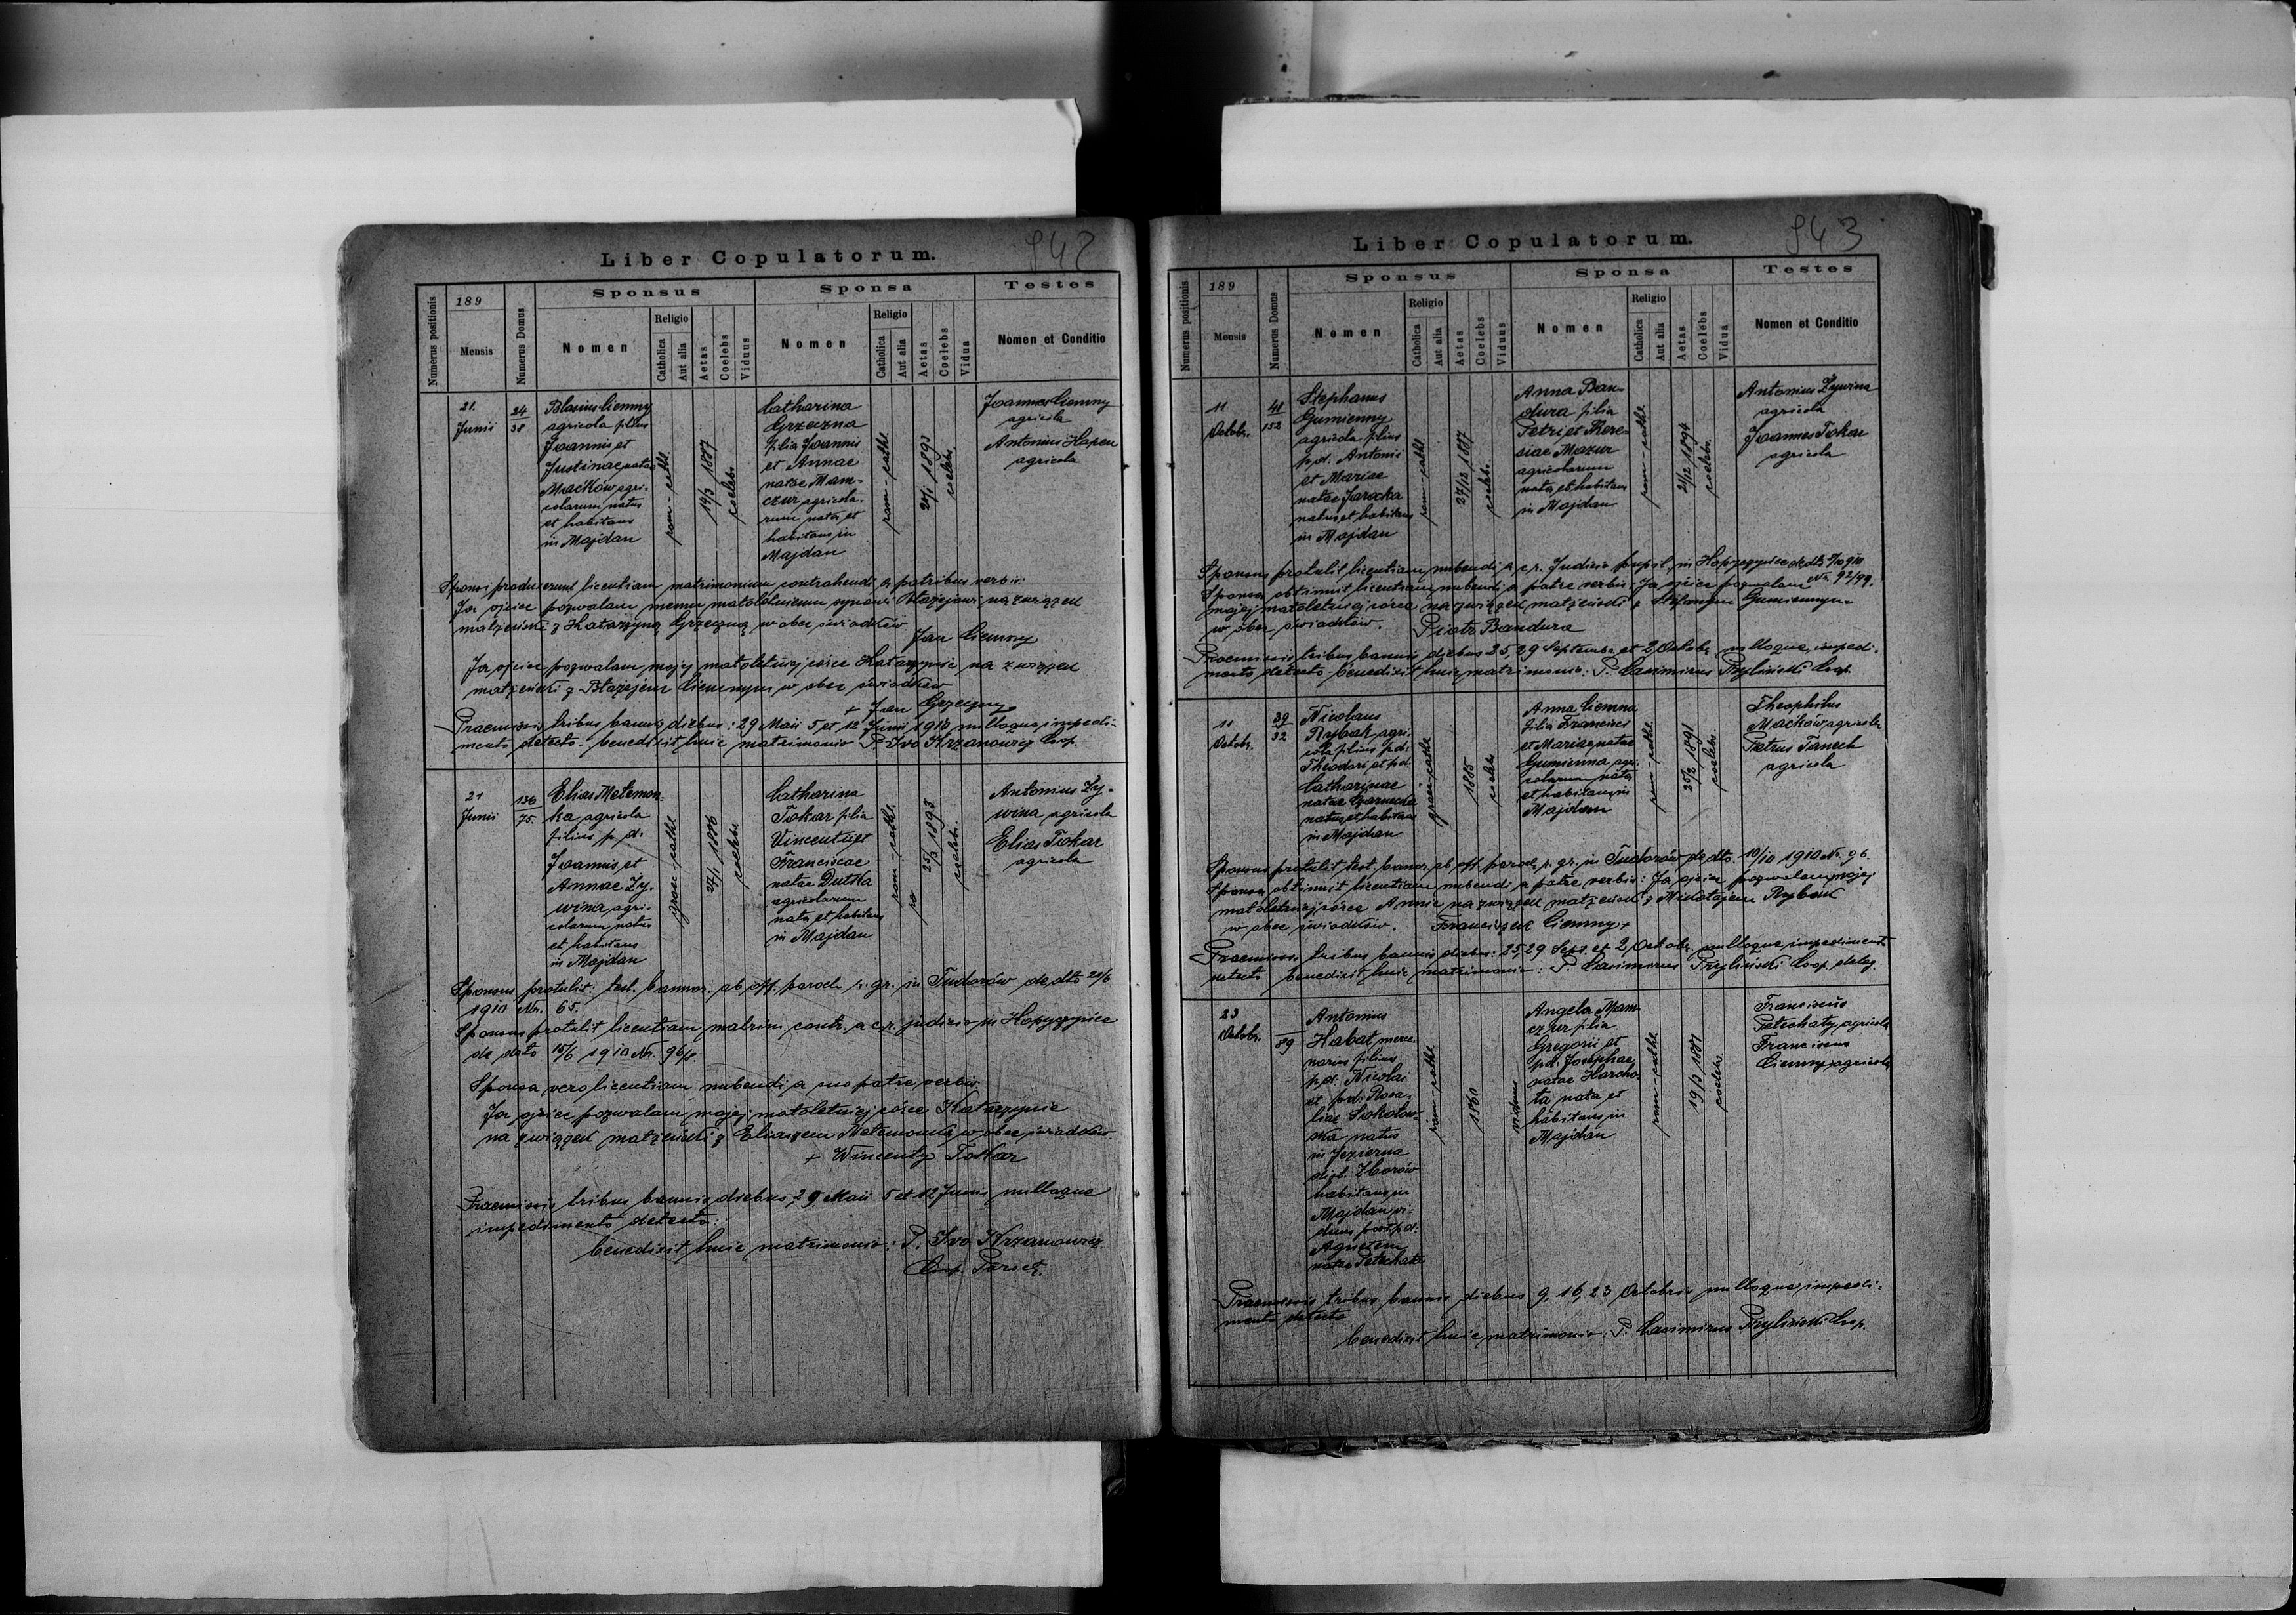 Liber Copulatorum.
942
Numerus positionis
189
Mensis
Numerus Domus
Sponsus
Nomen
Religio
Catholica
Aut alia
Aetas
Coelebs
Viduus
Sponsa
Nomen
Religio
Catholica
Aut alia
Aetas
Coelebs
Vidua
Testes
Nomen et Conditio
21.
Junii
24
38
Blasius Ciemny
agricola filius
Joannis et
Justinae natae
Maćków agri-
colarum natus
et habitans
in Majdan
rom-cath.
1887
coelebs
Catharina
Grzeczna
filia Joannis
et Annae
natae Mam-
czur agricola-
rum nata et
habitans in
Majdan
rom-cath.
1893
coelebs
Joannes Ciemny
agricola
Antonius Hapen
agricola
Sponsi produxerunt licentiam matrimonium contrahendi a patribus verbis:
Ja ojciec pozwalam memu małoletniemu synowi Błażejowi na związek
małżeński z Katarzyną Grzeczną w obec świadków.
Jan Ciemny
Ja ojciec pozwalam mojej małoletniej córce Katarzynie na związek
małżeński z Błażejem Ciemnym w obec świadków
+ Jan Grzeczny
Praemissis tribus bannis diebus: 29 Maii 5 et 12 Junii 1910 nulloque impedi-
mento detecto: benedixit huic matrimonio P. Ivo Krzanowicz Coop.
21
Junii
136
75.
Elias Metemon-
ka agricola
filius p. d.
Joannis et
Annae Zy-
wina agri-
colarum natus
et habitans
in Majdan
graec-cathl.
27/1 1886
coelebs
Catharina
Tokar filia
Vincentii et
Franciscae
natae Dutka
agricolarum
nata et habitans
in Majdan
rom-cathl.
25/3 1893
coelebs
Antonius Zy-
wina agricola
Elias Tokar
agricola
Sponsus protulit: test. bannor. ab off. paroch. r. gr. in Tudorów de dto 20/6
1910 Nr. 65.
Sponsus protulit licentiam matrim. contr. a c. r. judicio in Kopyczyńce
de dato 15/6 1910 Nr. 96/.
Sponsa vero licentiam nubendi a suo patre verbis:
Ja ojciec pozwalam mojej małoletniej córce Katarzynie
na związek małżeński z Eliaszem Metemonką w obec świadków
+ Wincenty Tokar
Praemissis tribus bannis diebus 29 Maii 5 et 12 Junii nulloque
impedimento detecto:
benedixit huic matrimonio: P. Ivo Krzanowicz
Liber Copulatorum.
943
Numerus positionis
189
Mensis
Numerus Domus
Sponsus
Nomen
Religio
Catholica
Aut alia
Aetas
Coelebs
Viduus
Sponsa
Nomen
Religio
Catholica
Aut alia
Aetas
Coelebs
Vidua
Testes
Nomen et Conditio
11
Octobr.
41
152
Stephanus
Gumienny
agricola filius
p. d. Antonii
et Mariae
natae Jarocka
natus et habitans
in Majdan
rom-cathl.
27/12 1887
coelebs
Anna Ban-
dura filia
Petri et There-
siae Mazur
agricolarum
nata et habitans
in Majdan
rom-cathl.
21/12 1894
coelebs.
Antonius Żywina
agricola
Joannes Tokar
agricola
Sponsus protulit licentiam nubendi a c. r. Judicio pupil. in Kopyczyńce de dto
Sponsa obtinuit licentiam nubendi a patre verbis: Ja ojciec pozwalam Nr. 92/99.
mojej małoletniej córce na związek małżeński z Stefanem Gumiennym
w obec świadków. Piotr Bandura
Praemissis tribus bannis diebus 25, 29 Septembr. et 2 Octobr. nulloque impedi-
mento detecto benedixit huic matrimonio: P. Casimirus Przyliński Coop.
11
Octobr.
29
32
Nicolaus
Rybak agri-
cola filius p. d.
Theodori et p. d.
Catharinae
natae
natus et habitans
in Majdan
graec-cathl.
1885
coelebs
Anna Ciemna
filia Francisci
et Mariae natae
Gumienna agri-
colarum nata
et habitans in
Majdan
rom-cathl.
25/2 1891
coelebs.
Theophilus
Maćków agricola
Petrus Tanech
agricola
Sponsus protulit test. bannor. ab off. paroch. r. gr. in Tudorów de dto. 10/10 1910 Nr. 96.
Sponsa obtinuit licentiam nubendi a patre verbis: Ja ojciec pozwalam mojej
małoletniej córce Annie na związek małżeński z Mikołajem Rybak
w obec świadków. Franciszek Ciemny +
Praemissis tribus bannis diebus: 25, 29 Sept. et 2 Octobr. nulloque impedimento
detecto benedixit huic matrimonio: P. Casimirus Przyliński Coop. deleg.
23
Octobr.
89
Antonius
Habat merce-
narius filius
p. d. Nicolai
et p. d. Rosa-
liae Sokołow-
ska natus
in Jezierna
dist. Zborów
habitans in
Majdan vi-
duus post p. d.
Agnetem
natae
rom-cathl.
1860
viduus
Angela Mam-
czur filia
Gregorii et
p. d. Josephae
natae Harcho-
ta nata et
habitans in
Majdan
rom-cathl.
19/3 1887
coelebs.
Franciscus
Petechaty agricola
Franciscus
Ciemny agricola
Praemissis tribus bannis diebus 9, 16, 23 Octobris nulloque impedi-
mento detecto
benedixit huic matrimonio: P. Casimirus Przyliński Coop.